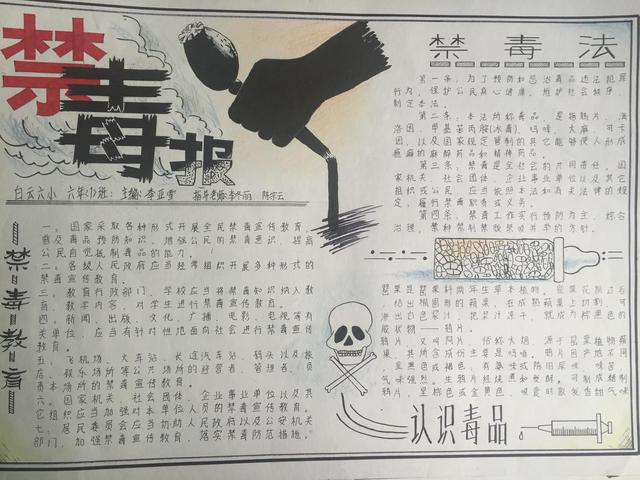 禁毒报
白云六小 六年(7)班: 主编:李亚雪 指导老师:李冬丽 陈尔云
禁毒教育
一:国家采取各种形式开展全民禁毒宣传教育,
普及毒品预防知识,增强公民的禁毒意识,提高
公民自觉抵制毒品的能力。
二:各级人民政府应当经常组织开展多种形式的
禁毒宣传教育。
三、教育行政部门、学校应当将禁毒知识纳入教
育、教学内容,对学生进行禁毒宣传教育。
四、新闻、出版、文化、广播、电影、电视等有
关单位,应当有针对性地面向社会进行禁毒宣传
教育。
五、飞机场、火车站、长途汽车站、码头以及旅
店、娱乐场所等公共场所的经营者、管理者,负
责本场所的禁毒宣传教育。
六、国家机关、社会团体、企业事业单位以及其
它组织应当加强对本单位人员的禁毒宣传教育。
七:居民委员会应当协助人民政府以及公安机关
部门,加强禁毒宣传教育,落实禁毒防范措施。
禁毒法
第一条:为了预防和惩治毒品违法犯罪
行为,保护公民身心健康,维护社会秩序,
制定本法。
第二条:本法所称毒品,是指鸦片、海
洛因、甲基苯丙胺(冰毒)、吗啡、大麻、可卡
因,以及国家规定管制的其它能够使人形成
瘾癖的麻醉药品和精神药品。
第三条:禁毒是全社会的共同责任。国
家机关、社会团体、企业事业单位以及其它
组织或公民,应当依照本法和有关法律的规
定,履行禁毒职责或义务。
第四条、禁毒工作实行预防为主,综合
治理,禁种禁制禁贩禁吸并举的方针。
罂粟是罂粟科两年生草本植物,罂粟花
结出椭圆形的蒴果,在成熟蒴果上切割,可
渗出白色浆汁,把浆汁凉干,就成为棕黑色的
膏状物——鸦片。
鸦片,又叫阿片,俗称大烟,源于罂粟植物蒴
果,其所含成份主要是吗啡。鸦片因产地不同
呈黑色或褐色,有氨味或陈旧尿味,味苦,
气味强烈。生鸦片经烧煮和发酵,可制成精制
鸦片,呈棕色或金黄色,吸食时散发香甜气味
认识毒品